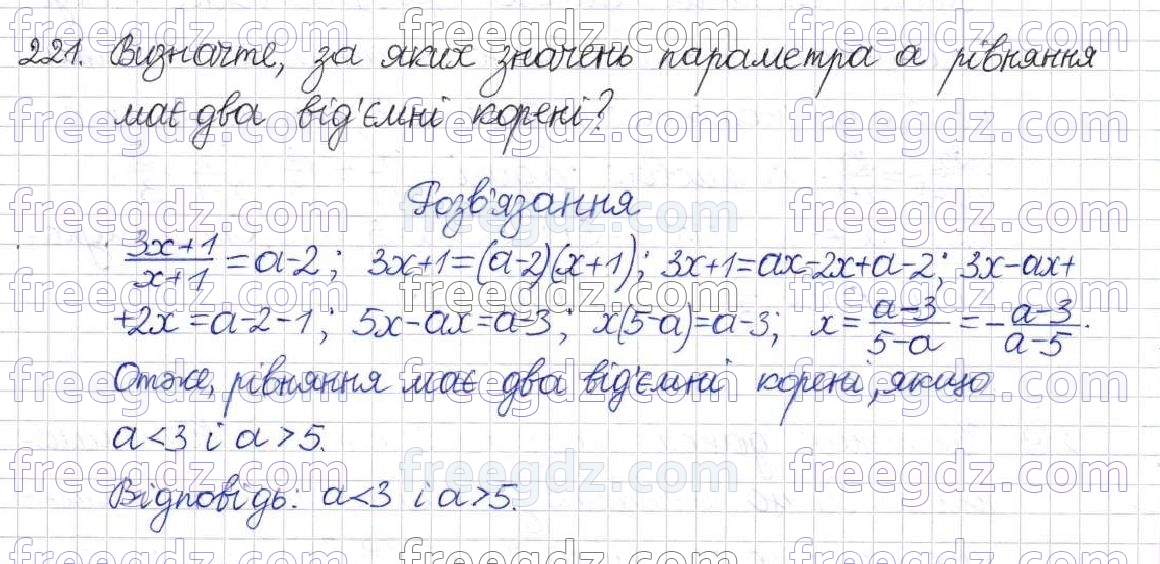 221. Визначте, за яких значень параметра а рівняння
має два від'ємні корені?
Розв'язання
3x+1/x+1 = a-2; 3x+1=(a-2)(x+1); 3x+1=ax-2x+a-2; 3x-ax+
+2x=a-2-1; 5x-ax=a-3; x(5-a)=a-3; x= a-3/5-a = - a-3/a-5.
Отже, рівняння має два від'ємні корені, якщо
a<3 і a>5.
Відповідь: a<3 і a>5.
freegdz.com